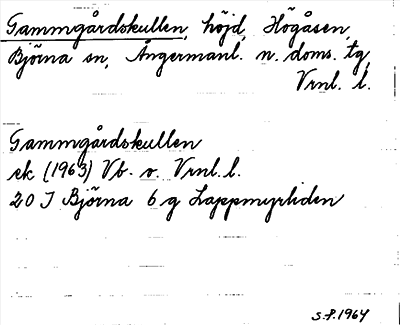 Gammgårdskullen, höjd, Högåsen,
Björna sn, Ångermanl. n. doms. tg,
Vrnl. l.
Gammgårdskullen
ek (1963) Vb. o. Vrnl. l.
20 J Björna 6 g Lappmyrliden
S.f. 1964